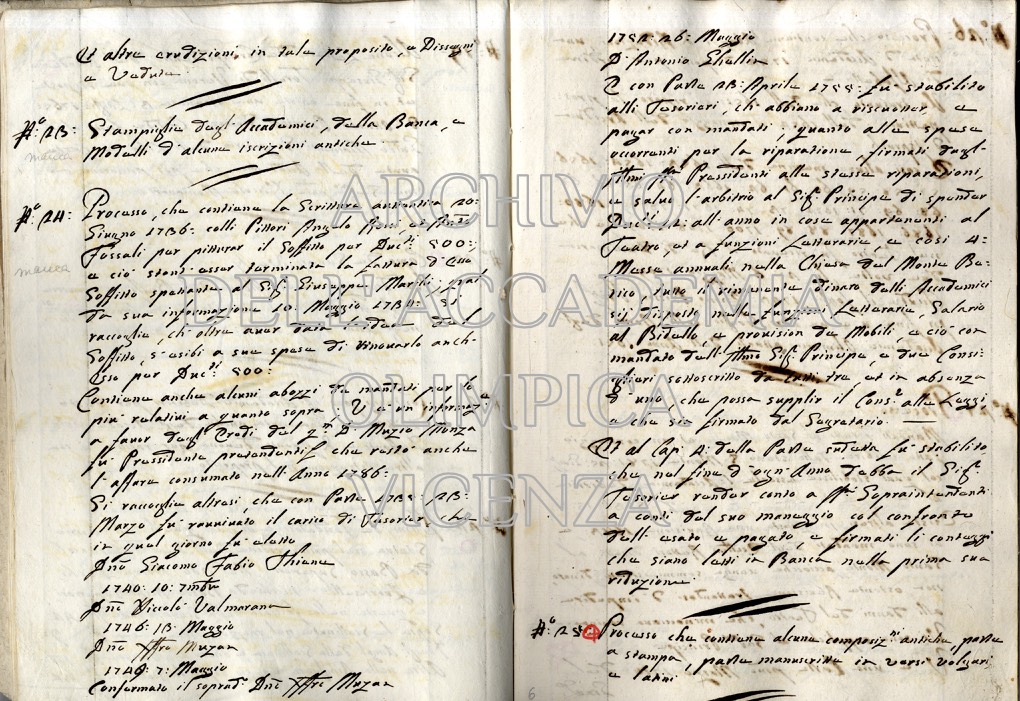 Et altre erudizioni in tale proposito, e Dissegni
e Vedute.
N.º 23: Stampiglie degl'Accademici, della Banca, e
manca
Modelli d'alcune iscrizioni antiche.
N.º 24: Processo, che contiene la Scrittura autentica 20:
Giugno 1736: colli Pittori Angelo Rossi, e
Fossati per pitturar il Soffitto per Duc.ti 800:;
manca
e ciò stante esser terminata la fattura d'esso
Soffitto spettante al Sig.r Giuseppe
da sua informazione 10: Maggio 1734: si
raccoglie, ch'oltre aver
Soffitto, s'esibì a sue spese di rinovarlo anch-
Esso per Duc.ti 800:
Contiene anche alcuni abozzi de mandati per lo
più relativi a quanto sopra. E un informaz.e
a favor degl'Eredi del q.m D. Muzio Monza
fù Presidente che restò anche
l'affare consumato nell'Anno 1786:
Si raccoglie altresì, che con Parte 1738: 23:
Marzo fù rauvivato il carico di Tesorier, che
in quel giorno fù eletto
Dño Giacomo Fabio Thiene
1740: 10: 7mbre
Dño Nicolò Valmarana
1746: 13: Maggio
Dño Muzan
1748: 7: Maggio
Confermato il soprad.º Dño Muzan
1752: 26: Maggio
D. Antonio Ghellin
E con Parte 23: Aprile 1755: fù stabilito
alli Tesorieri, ch'abbiano a riscuoter e
pagar con mandati, quanto alle spese
occorrenti per la riparazione, firmati dagl-
Ill.mi Pressidenti alle stesse riparazioni,
e salvo l'arbitrio al Sig.r Principe di spender
Duc.ti all'anno in cose appartenenti al
Teatro, et a funzioni Letterarie, e così 4:
Messe annuali nella Chiesa del Monte Be-
rico, tutto il rimanente dinaro delli Accademici
sij disposto nelle funzioni Letterarie, Salario
al Bidello, e provision de Mobili, e ciò con
mandato dell'Ill.mo Sig.r Principe, e due Consi-
glieri sottoscritto da tutti tre, et in absenza
d'uno che possa supplir il Cons.r alle Leggi,
e che sia firmato dal Segretario.
Et al Cap. 4: della Parte fù stabilito
che nel fine d'ogn'Anno debba il Sig.r
Tesorier render conto a Sopraintendenti
a conti del suo maneggio col confronto
dell'esato, e pagato, e firmati li conteggi
che siano letti in Banca nella prima sua
riduzione.
N.º 25: Processo che contiene alcune composiz.ni antiche, parte
a stampa, parte manuscritte in versi volgari
e latini
6
ARCHIVIO
DELL'ACCADEMIA
OLIMPICA
VICENZA